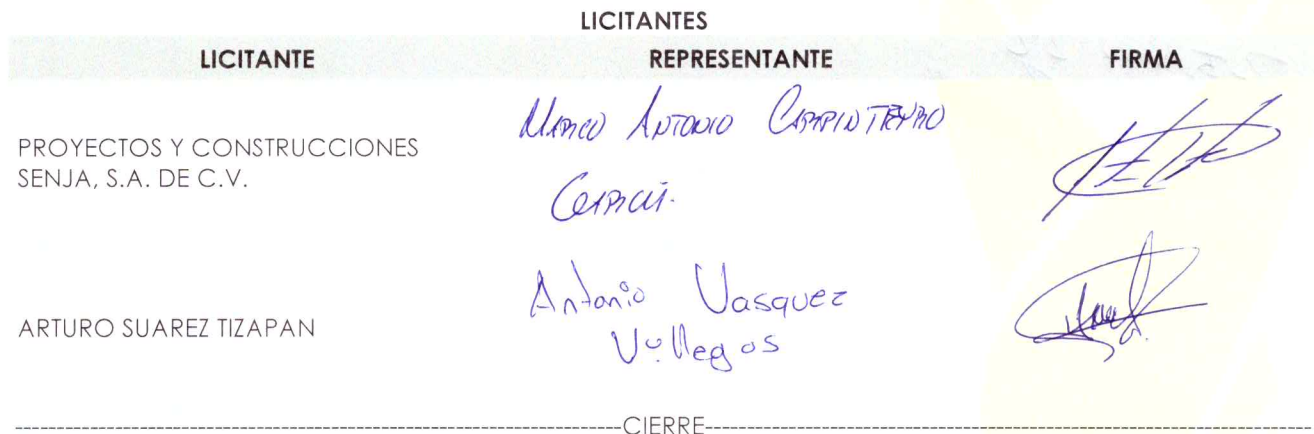 LICITANTES
LICITANTE REPRESENTANTE FIRMA
PROYECTOS Y CONSTRUCCIONES
SENJA, S.A. DE C.V.
MARCO ANTONIO CARPINTEYRO
ARTURO SUAREZ TIZAPAN
Antonio Vasquez
Villegas
CIERRE